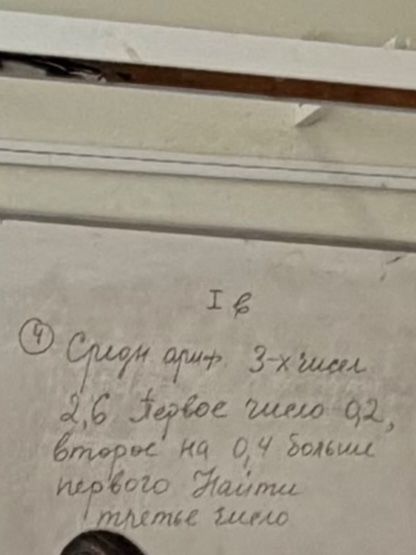 I в
④ Средн арифм. 3-х чисел
2,6 Первое число 0,2,
второе на 0,4 больше
первого Найти
третье число